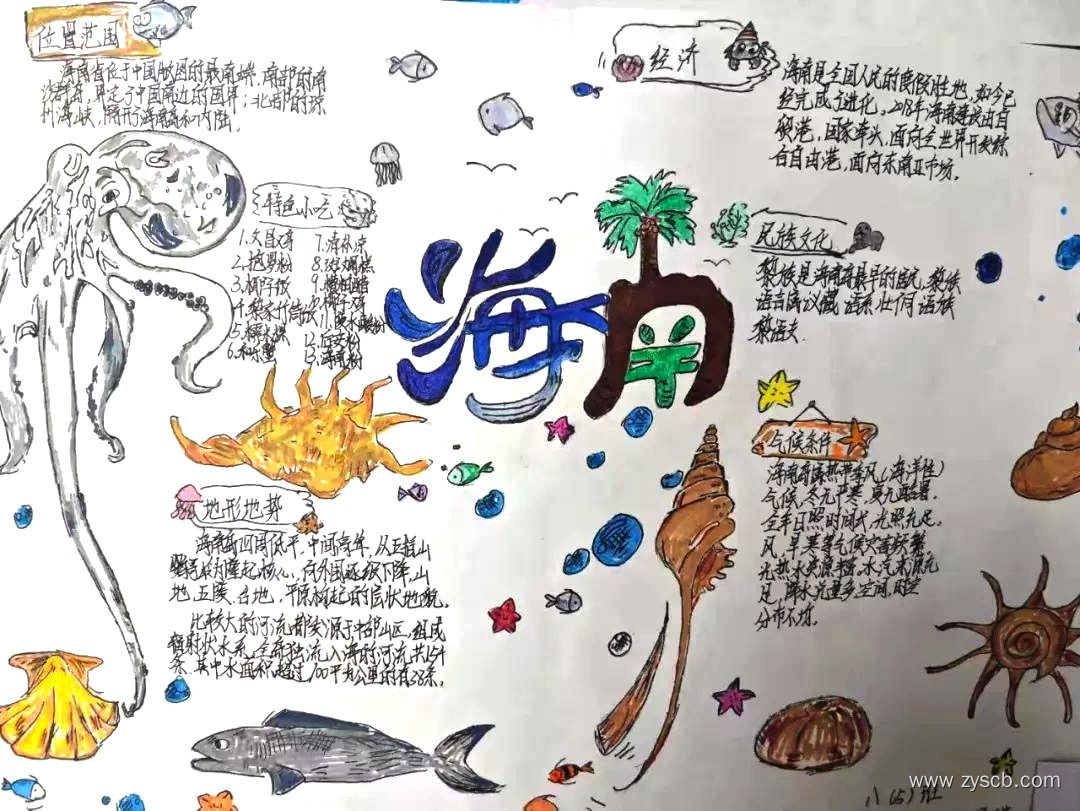 位置范围
海南省位于中国版图的最南端,南部的南
沙群岛,界定了中国南边的国界;北部的琼
州海峡,隔开了海南岛和内陆。
特色小吃
1.文昌鸡
2.抱罗粉
3.椰子饭
4.黎家竹筒饭
5.椰
6.和乐蟹
7.清补凉
8.斑斓糕
9.
10.椰子鸡
11.陵水酸粉
12.后安粉
13.海南粉
地形地势
海南岛四周低平,中间高耸,从五指山
鹦哥岭为隆起核心,向外围逐级下降,山
地、丘陵、台地、平原构起的层状地貌。
比较大的河流都发源于中部山区,组成
辐射状水系,全岛独流入海的河流共154
条,其中水面积超过100平方公里的有38条。
海南
经济
海南是全国人民的度假胜地,如今已
经完成了进化。2018年海南建设由自
贸港,国家牵头,面向全世界开发综
合自由港,面向东南亚市场。
民族文化
黎族是海南岛最早的居民,黎族
语言属汉藏语系壮侗语族
黎语支
气候条件
海南省属热带季风(海洋性)
气候,冬无严寒,夏无酷暑,
全年日照时间长,光照充足,
风、旱、寒等气候灾害频繁
光热水资源丰富,水汽来源充
足,降水充量多,空间、时空
分布不均.
八(5)班
www.zyscb.com